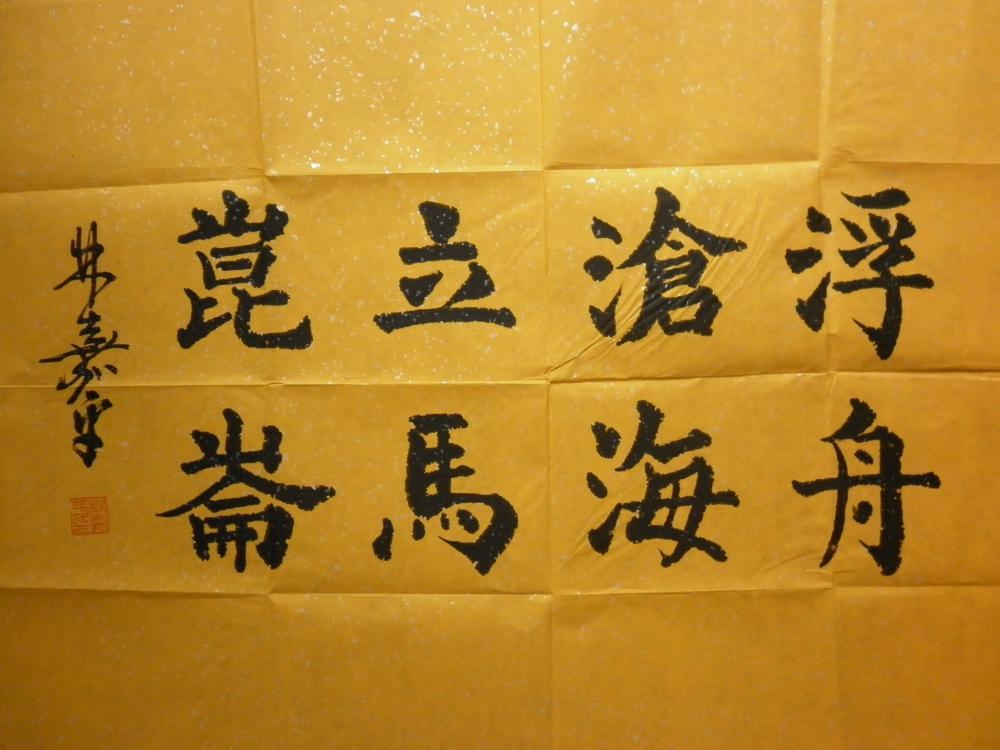 浮舟
滄海
立馬
崑崙
林嘉平